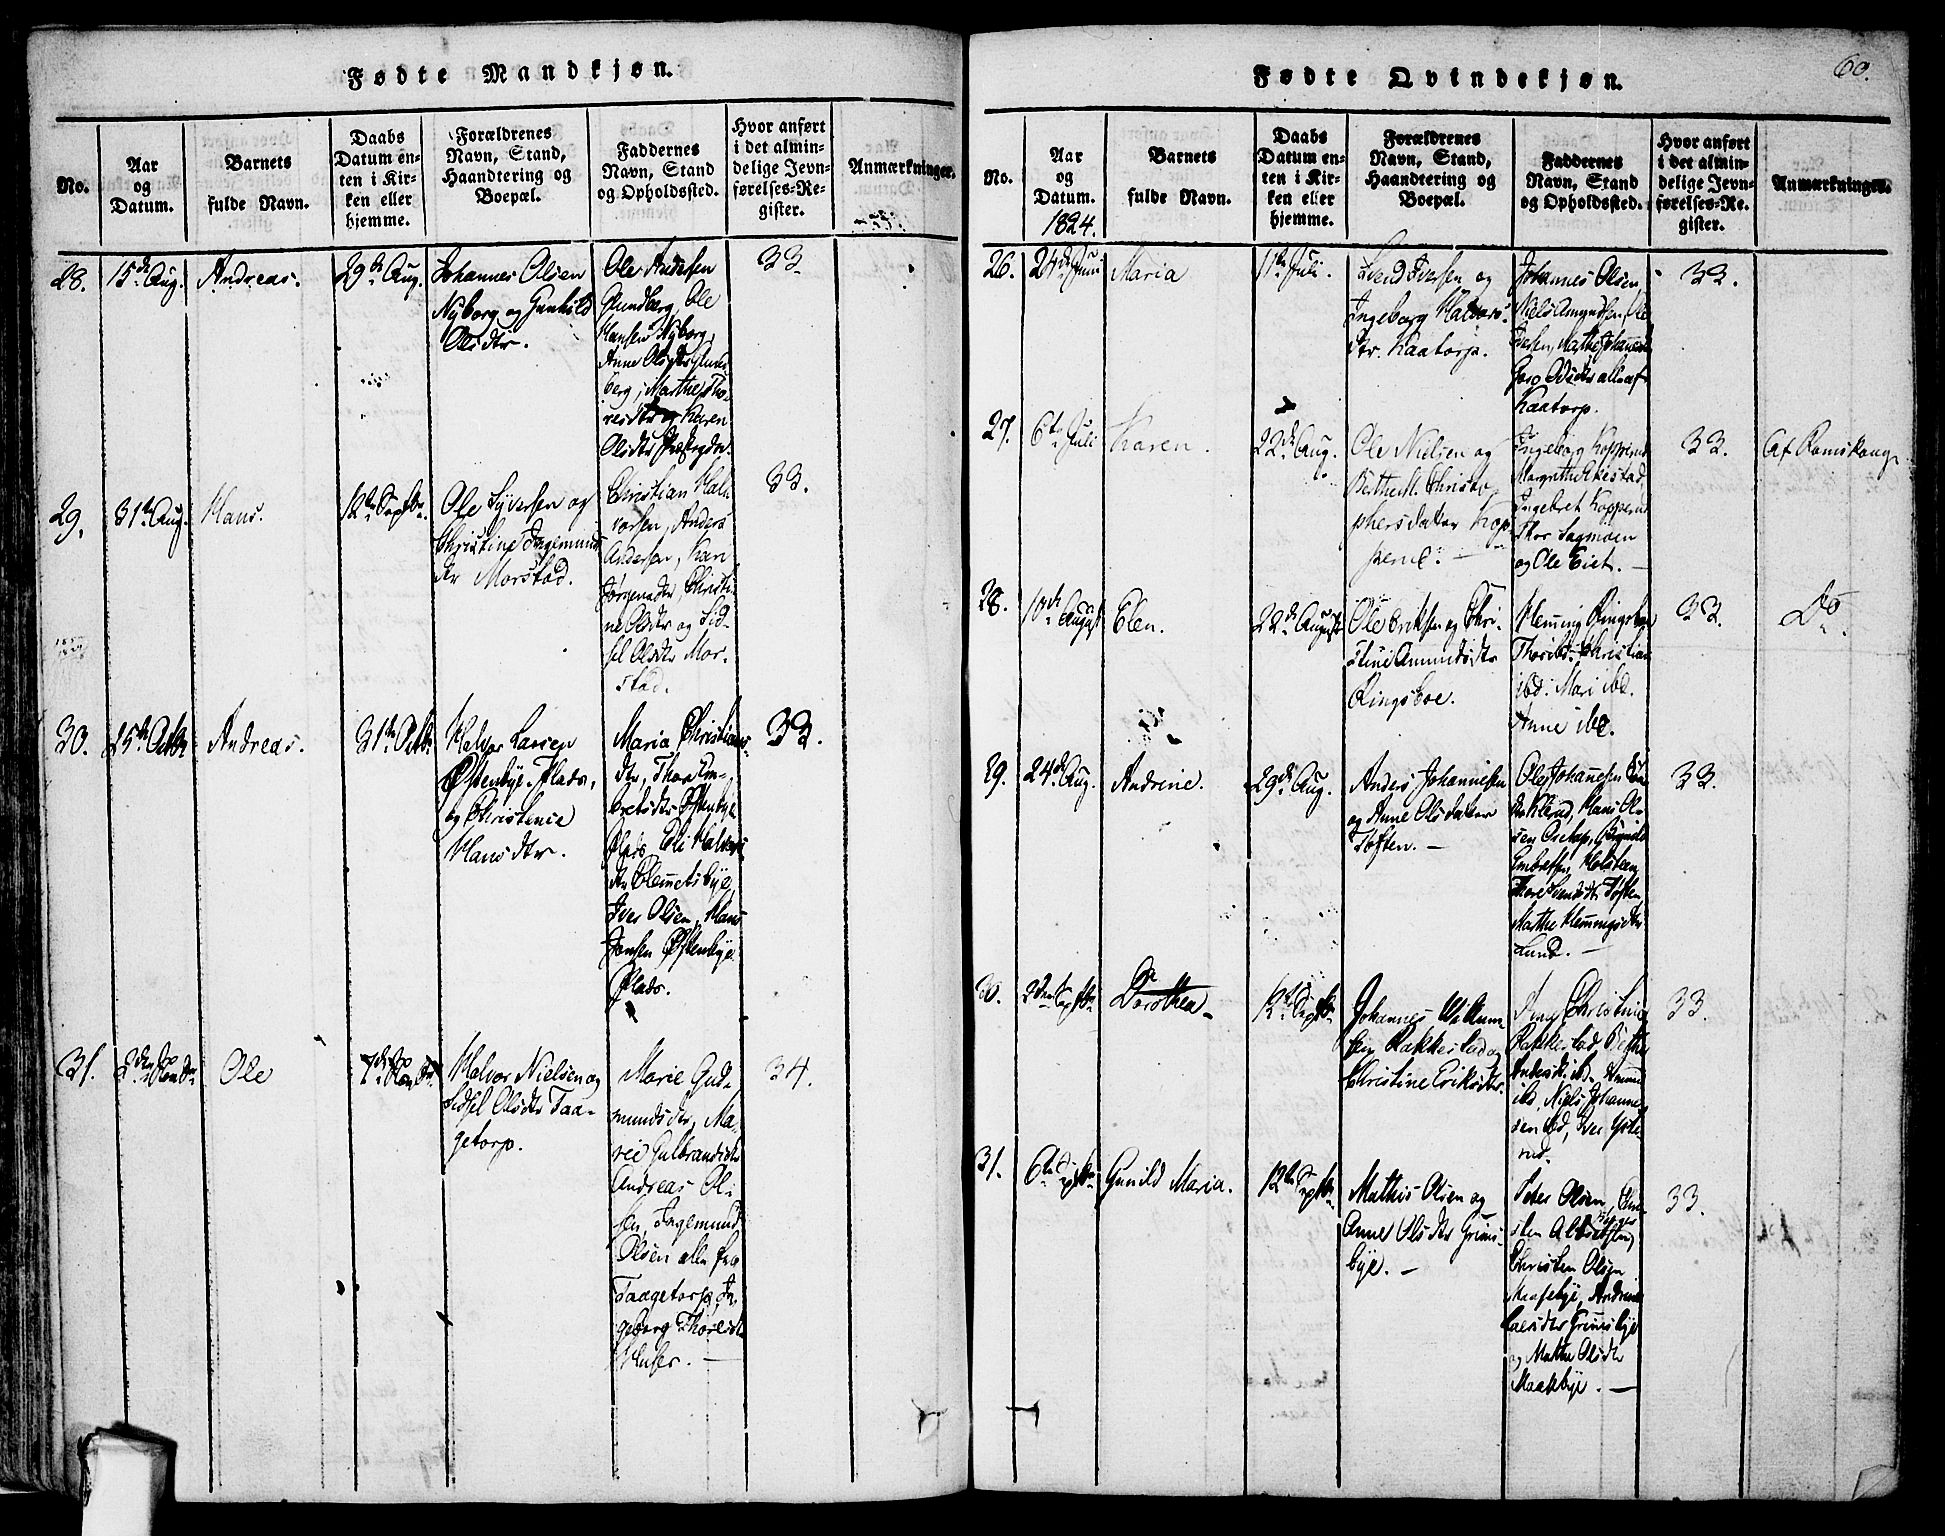 Fødte Mandkjøn.
No.
Aar
og
Datum.
Barnets
fulde Navn.
Daabs
Datum en-
ten i Kir-
ken eller
hjemme.
Forældrenes
Navn, Stand,
Haandtering og
Boepæl.
Faddernes
Navn, Stand
og Opholdssted.
Hvor anført
i det almin-
delige Jevn-
førelses-Re-
gister.
Anmærkninger.
28.
15de Aug.
Andreas.
29de Aug.
Johannes Olsen
Nyborg og Gunhild
Olsdtr.
Ole Andersen
Grundberg, Ole
Hansen Nyborg,
Anne Olsdtr
berg, Marthe Tho-
resdtr og Karen
Olsdtr
33
29.
31te Aug.
Hans.
12te Septbr.
Ole Syversen og
Christine Ingemunds
dtr Morstad.
Christian Hal-
vorsen, Anders
Andersen, Karn
Jørgensdtr, Christi-
ne Olsdtr og Sid-
sel Olsdtr Mor-
stad.
33.
30.
15de Octbr
Andreas.
31te Octbr
Halvor Larsen
Østenbye Plads,
og Christence
Hansdtr.
Maria Christians-
dtr, Thore Em-
bretsdtr Østenbye
Plads, Eli Halvors-
dtr Clemetsbye,
Iver Olsen, Hans
Jonsen Østenbye
Plads.
33.
31.
Ole
Halvor Nielsen og
Sidsel Olsdtr Taa-
getorp.
Marie Gud-
mundsdtr, Ma-
rie Gulbrandsdtr
Andreas Ol-
sen, Ingemund
Olsen alle fra
Taagetorp, In-
geborg Thoresdtr
Huser. —
34.
Fødte Qvindekjøn.
60.
No.
Aar
og
Datum.
1824.
Barnets
fulde Navn.
Daabs
Datum en-
ten i Kir-
ken eller
hjemme.
Forældrenes
Navn, Stand,
Haandtering og
Boepæl.
Faddernes
Navn, Stand
og Opholdssted.
Hvor anført
i det almin-
delige Jevn-
førelses-Re-
gister.
Anmærkninger.
26.
24de Juni
Maria
11te Juli.
Svend Iversen og
Ingeborg Halvors-
dtr. Kaatorp.
Johannes Olsen,
Niels Amundsen, Ole
Iversen, Marthe Johansdtr
Goro Olsdtr alle af
Kaatorp.
33.
27.
6te Juli
Karen.
22de Aug.
Ole Nielsen og
Berthe M. Christo-
phersdatter Kop-
perud. —
Ingeborg Kopperud
Margrethe
Ingebret Kopperud
Thor Sagmoen
og Ole Eiet. —
33.
Af Romskoug
28.
10de August
Elen.
22de August
Ole Eriksen og Chri-
stine Amundsdtr
Ringsboe.
Flemming Ringsboe
Christian
ibd. Mari ibd.
Anne ibd.
33.
Do
29.
24de Aug.
Andrine.
29de Aug.
Anders Johannesen
og Anne Olsdatter
Toften. —
Ole Johannesen
Hans Ol-
sen
Embretsen, Holsteen,
Thore Svendsdtr Toften,
Marthe Flemmingsdtr
Lund. —
33.
30.
2den Septbr
Dorothea
12te Septbr
Johannes Wilum-
sen Rakkestad og
Christine Eriksdtr.
Christine
Rakkestad, Berthe
Andersdtr ibd.
ibd, Niels Johanne-
sen ibd, Iver
rud.
33.
31.
6te Septbr
Gunild Maria.
12te Septbr
Mathis Olsen og
Anne Olsdtr Grims-
bye. —
Peter Olsen,
Christen Olsen
Haakbye, Andrine
Larsdtr Grimsbye
og Marthe Olsdtr
Haakbye. —
33.